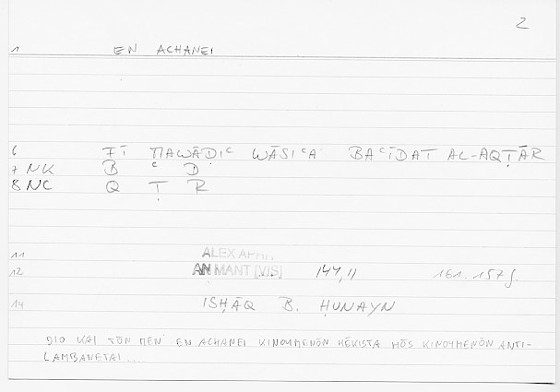 2
1 EN ACHANEI
6 FĪ MAWĀḌIᶜ WĀSIᶜA BAᶜĪDAT AL-AQṬĀR
7 NK B ᶜ D
8 NC Q Ṭ R
11 ALEX APHR.
12 AN MANT [VIS] 144,11 161.157f.
14 ISḤĀQ B. ḤUNAYN
DIO KAI TŌN MEN EN ACHANEI KINOYMENŌN HĒKISTA HŌS KINOYMENŌN ANTI-
LAMBANETAI...